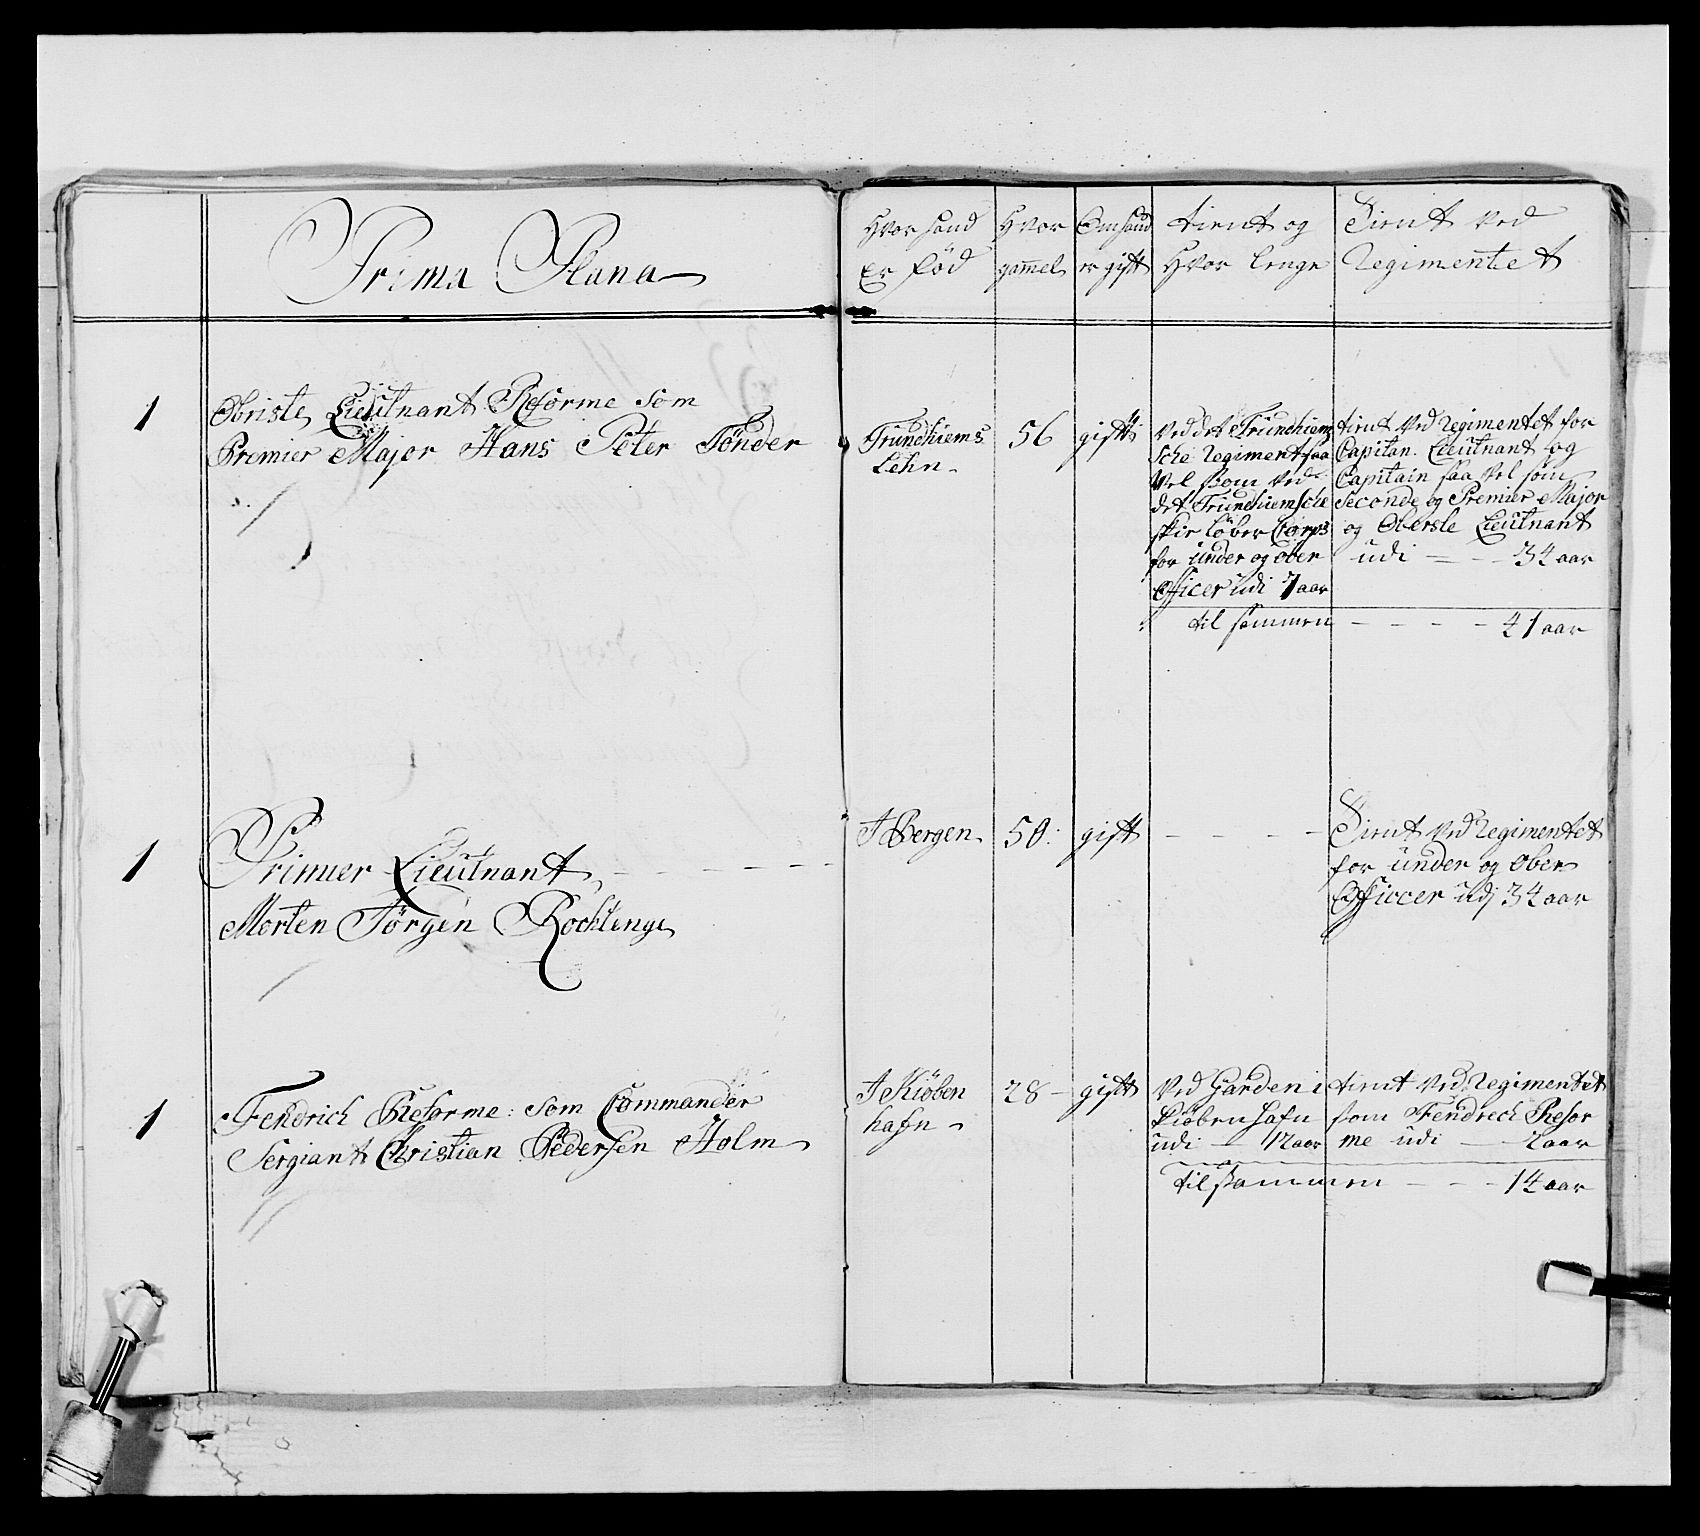 Prima Plana
Hvor hand
Er fød
Hvor
gammel
Om hand
er gift
tient og
Hvor lenge
Tient ved
Regimentet
1
Obriste Lieutnant Reforme som
Premier Major Hans Peter Tønder
Trundhiems
Lehn
56
gift
ved det Trundhiem
sche Regiment saa
vel som ved
det Trundhiemsche
skie løber Corps
for under og ober
Officer udi 7 aar
tient ved Regimentet for
Capitain Lieutnant og
Capitain saa vel som
Seconde og Premier Major
og Oberste Lieutnant
udi - - - 34 aar
til sammen - - - - 41 aar
1
Primier Lieutnant - - - - - -
Morten Jørgen Rochlenge
I Bergen
50
gift
- - - -
Tient ved Regimentet
for under og ober
Officcer udj 34 aar
1
Fendrich Reforme som Commander
Sergiant Christian Pedersen Holm
I Kiøben
hafn
28
gift
ved Garden i
kiøbenhafn
udi - 12 aar
tient ved Regimentet
som Fendrech Refor
me udi - 2 aar
til sammen - - - 14 aar